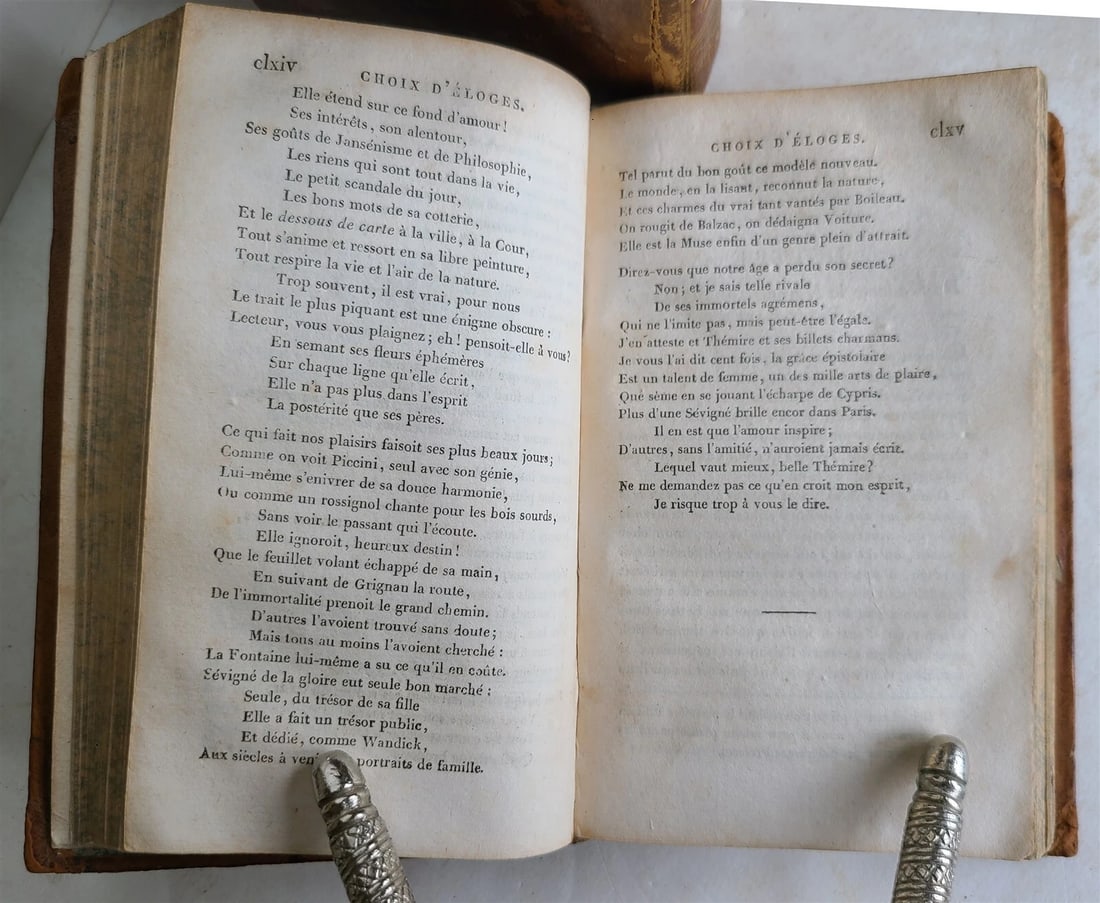 clxiv
CHOIX D'ÉLOGES.
Elle étend sur ce fond d'amour !
Ses intérêts, son alentour,
Ses goûts de Jansénisme et de Philosophie,
Les riens qui sont tout dans la vie,
Le petit scandale du jour,
Les bons mots de sa cotterie,
Et le dessous de carte à la ville, à la Cour,
Tout s'anime et ressort en sa libre peinture,
Tout respire la vie et l'air de la nature.
Trop souvent, il est vrai, pour nous
Le trait le plus piquant est une énigme obscure :
Lecteur, vous vous plaignez ; eh ! pensoit-elle à vous ?
En semant ses fleurs éphémères
Sur chaque ligne qu'elle écrit,
Elle n'a pas plus dans l'esprit
La postérité que ses pères.
Ce qui fait nos plaisirs faisoit ses plus beaux jours ;
Comme on voit Piccini, seul avec son génie,
Lui-même s'enivrer de sa douce harmonie,
Ou comme un rossignol chante pour les bois sourds,
Sans voir le passant qui l'écoute.
Elle ignoroit, heureux destin !
Que le feuillet volant échappé de sa main,
En suivant de Grignan la route,
De l'immortalité prenoit le grand chemin.
D'autres l'avoient trouvé sans doute ;
Mais tous au moins l'avoient cherché :
La Fontaine lui-même a su ce qu'il en coûte.
Sévigné de la gloire eut seule bon marché :
Seule, du trésor de sa fille
Elle a fait un trésor public,
Et dédié, comme Wandick,
Aux siècles à portraits de famille.
CHOIX D'ÉLOGES.
clxv
Tel parut du bon goût ce modèle nouveau.
Le monde, en la lisant, reconnut la nature,
Et ces charmes du vrai tant vantés par Boileau.
On rougit de Balzac, on dédaigna Voiture.
Elle est la Muse enfin d'un genre plein d'attrait.
Direz-vous que notre âge a perdu son secret ?
Non ; et je sais telle rivale
De ses immortels agrémens,
Qui ne l'imite pas, mais peut-être l'égale.
J'en atteste et Thémire et ses billets charmans.
Je vous l'ai dit cent fois, la grâce épistolaire
Est un talent de femme, un des mille arts de plaire,
Que sème en se jouant l'écharpe de Cypris.
Plus d'une Sévigné brille encor dans Paris.
Il en est que l'amour inspire ;
D'autres, sans l'amitié, n'auroient jamais écrit.
Lequel vaut mieux, belle Thémire ?
Ne me demandez pas ce qu'en croit mon esprit,
Je risque trop à vous le dire.